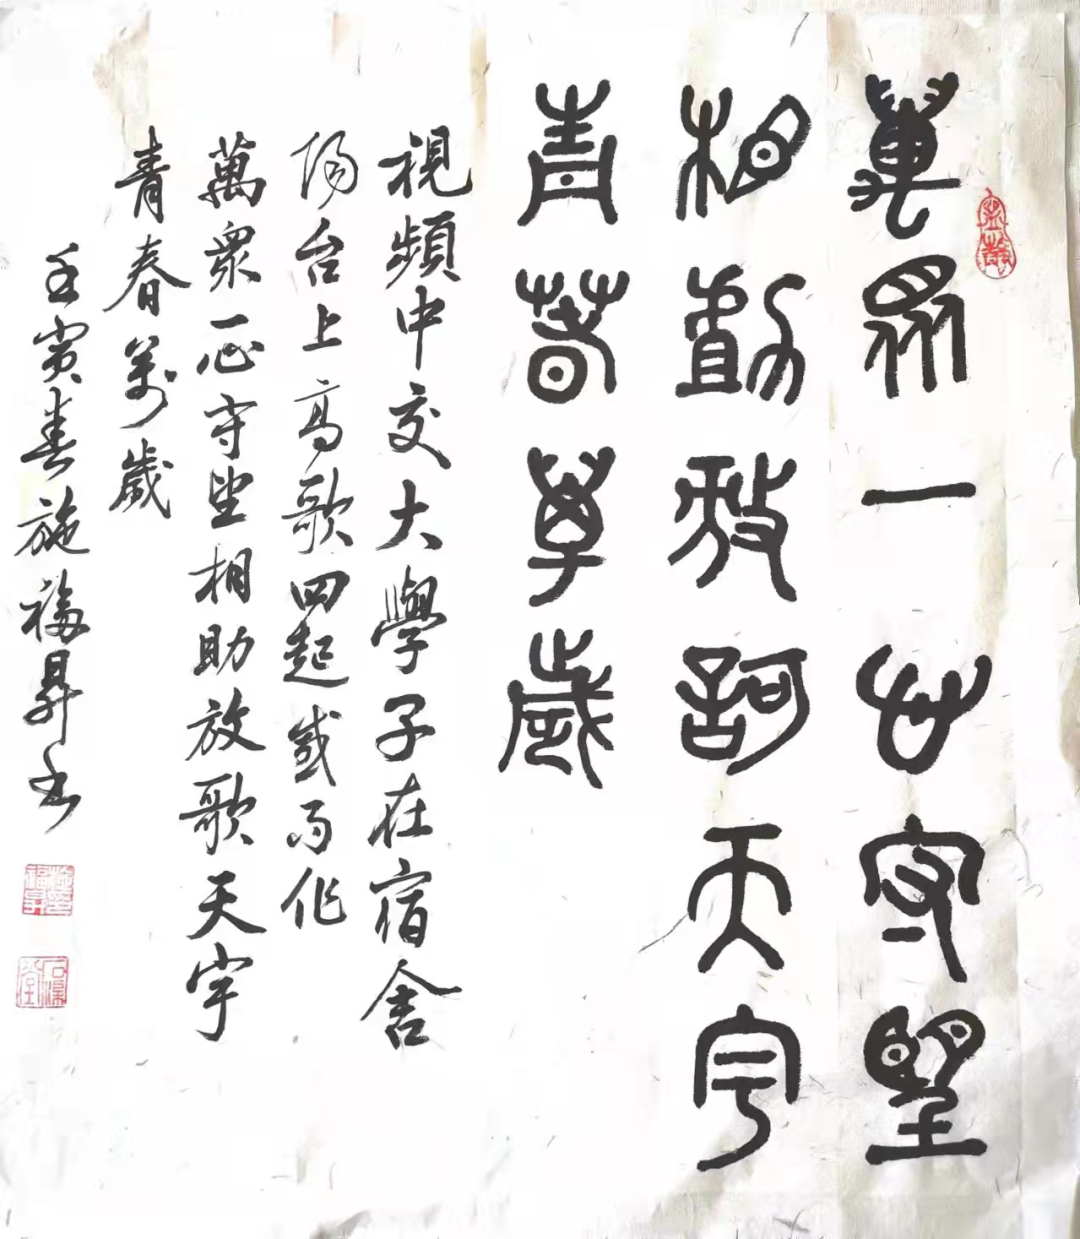 萬眾一心守望
相助放歌天宇
青春萬歲
視頻中交大學子在宿舍
陽台上高歌四起感而作
萬眾一心守望相助放歌天宇
青春萬歲
壬寅春施福昇書